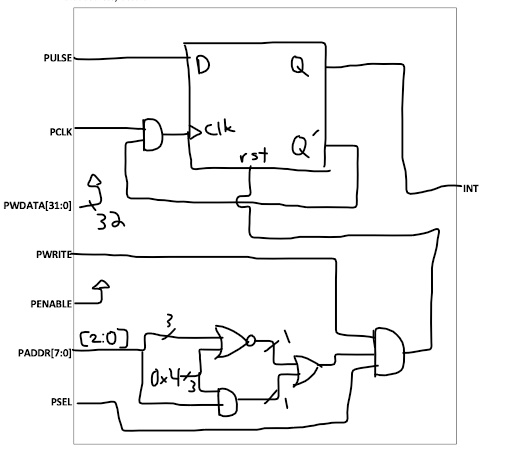 PULSE
D
Q
PCLK
Clk
Q'
rst
INT
PWDATA[31:0]
32
PWRITE
PENABLE
[2:0]
3
1
PADDR[7:0]
0x4
3
1
PSEL